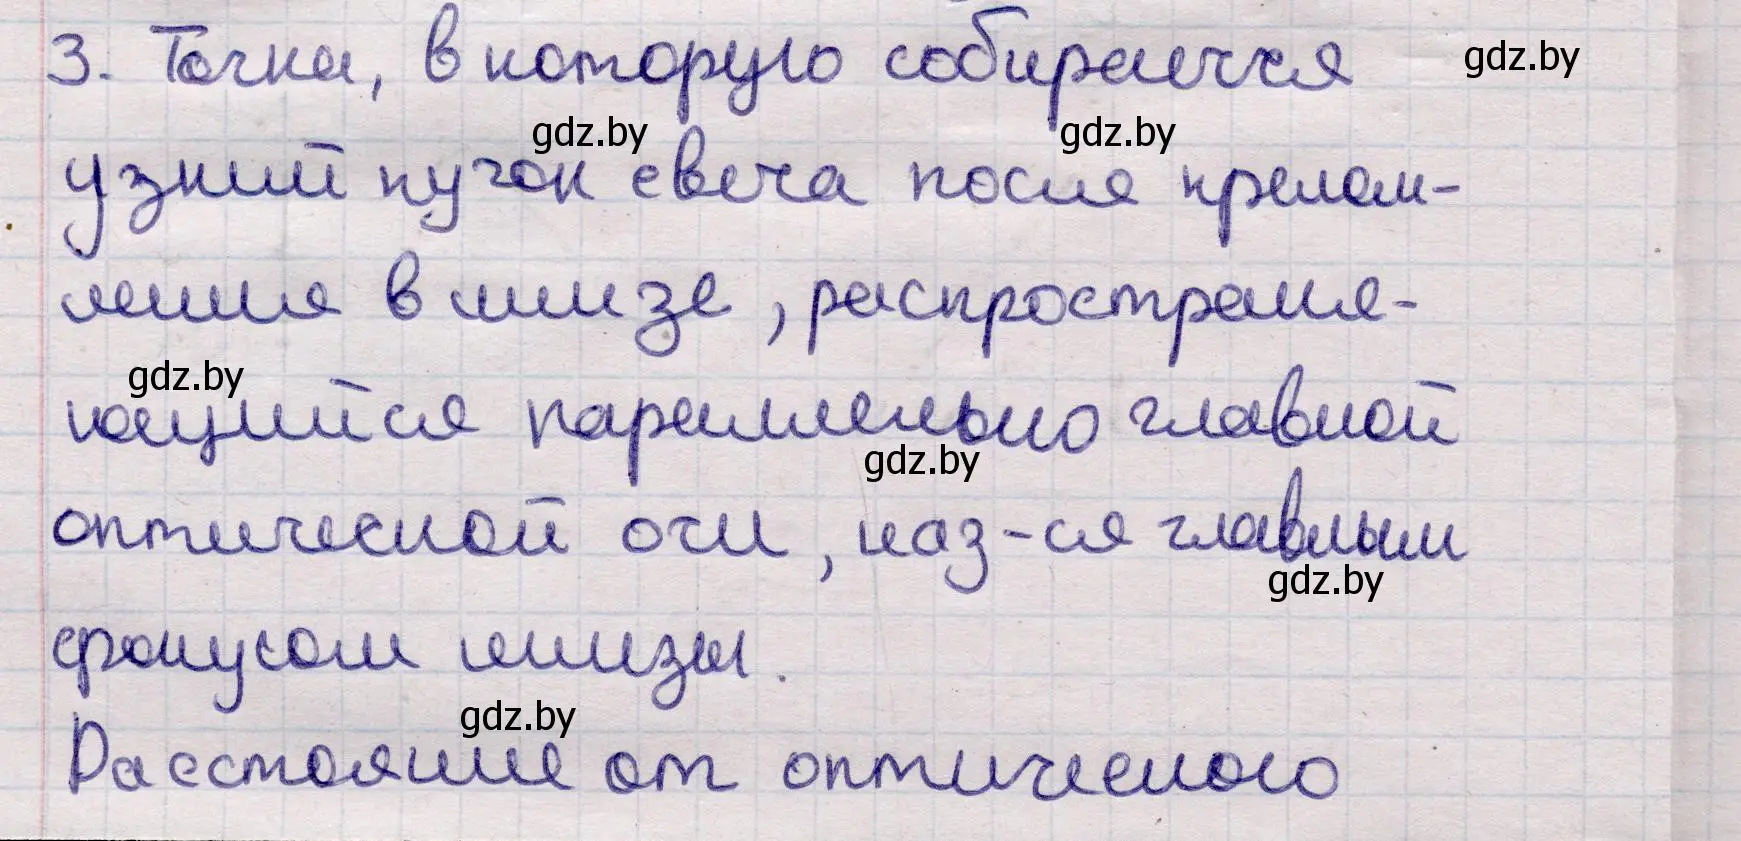 3. Точка, в которую собирается
gdz.by
gdz.by
gdz.by
узкий пучок света после прелом-
ления в линзе, распространя-
gdz.by
ющийся параллельно главной
gdz.by
оптической оси, наз-ся главным
gdz.by
фокусом линзы.
gdz.by
Расстояние от оптического